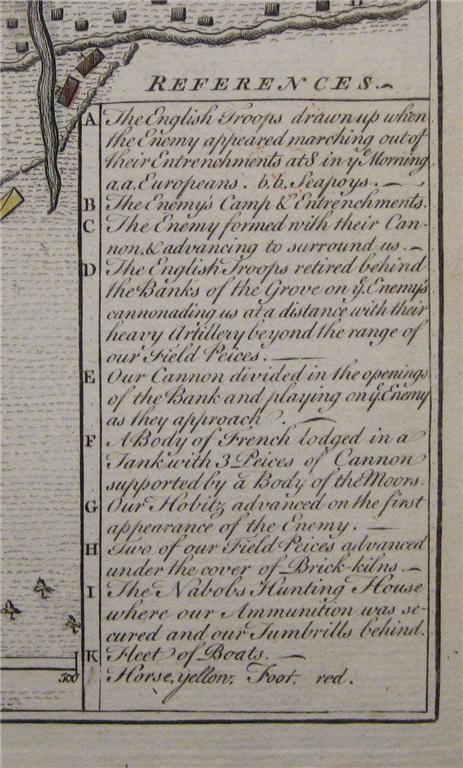 REFERENCES.
A The English Troops drawn up when
the Enemy appeared marching out of
their Entrenchments at 8 in yͤ Morning.
a.a. Europeans. b.b. Seapoys.
B The Enemy's Camp & Entrenchments.
C The Enemy formed with their Can-
non, & advancing to surround us.
D The English Troops retired behind
the Banks of the Grove on yͤ Enemys
cannonading us at a distance with their
heavy Artillery beyond the range of
our Field Peices.
E Our Cannon divided in the openings
of the Bank and playing on yͤ Enemy
as they approach.
F A Body of French lodged in a
Tank with 3 Peices of Cannon
supported by a Body of the Moors.
G Our Hobitz advanced on the first
appearance of the Enemy.
H Two of our Field Peices advanced
under the cover of Brick-kilns.
I The Nabobs Hunting House
where our Ammunition was se-
cured and our Tumbrills behind.
K Fleet of Boats.
Horse, yellow, Foot, red.
500